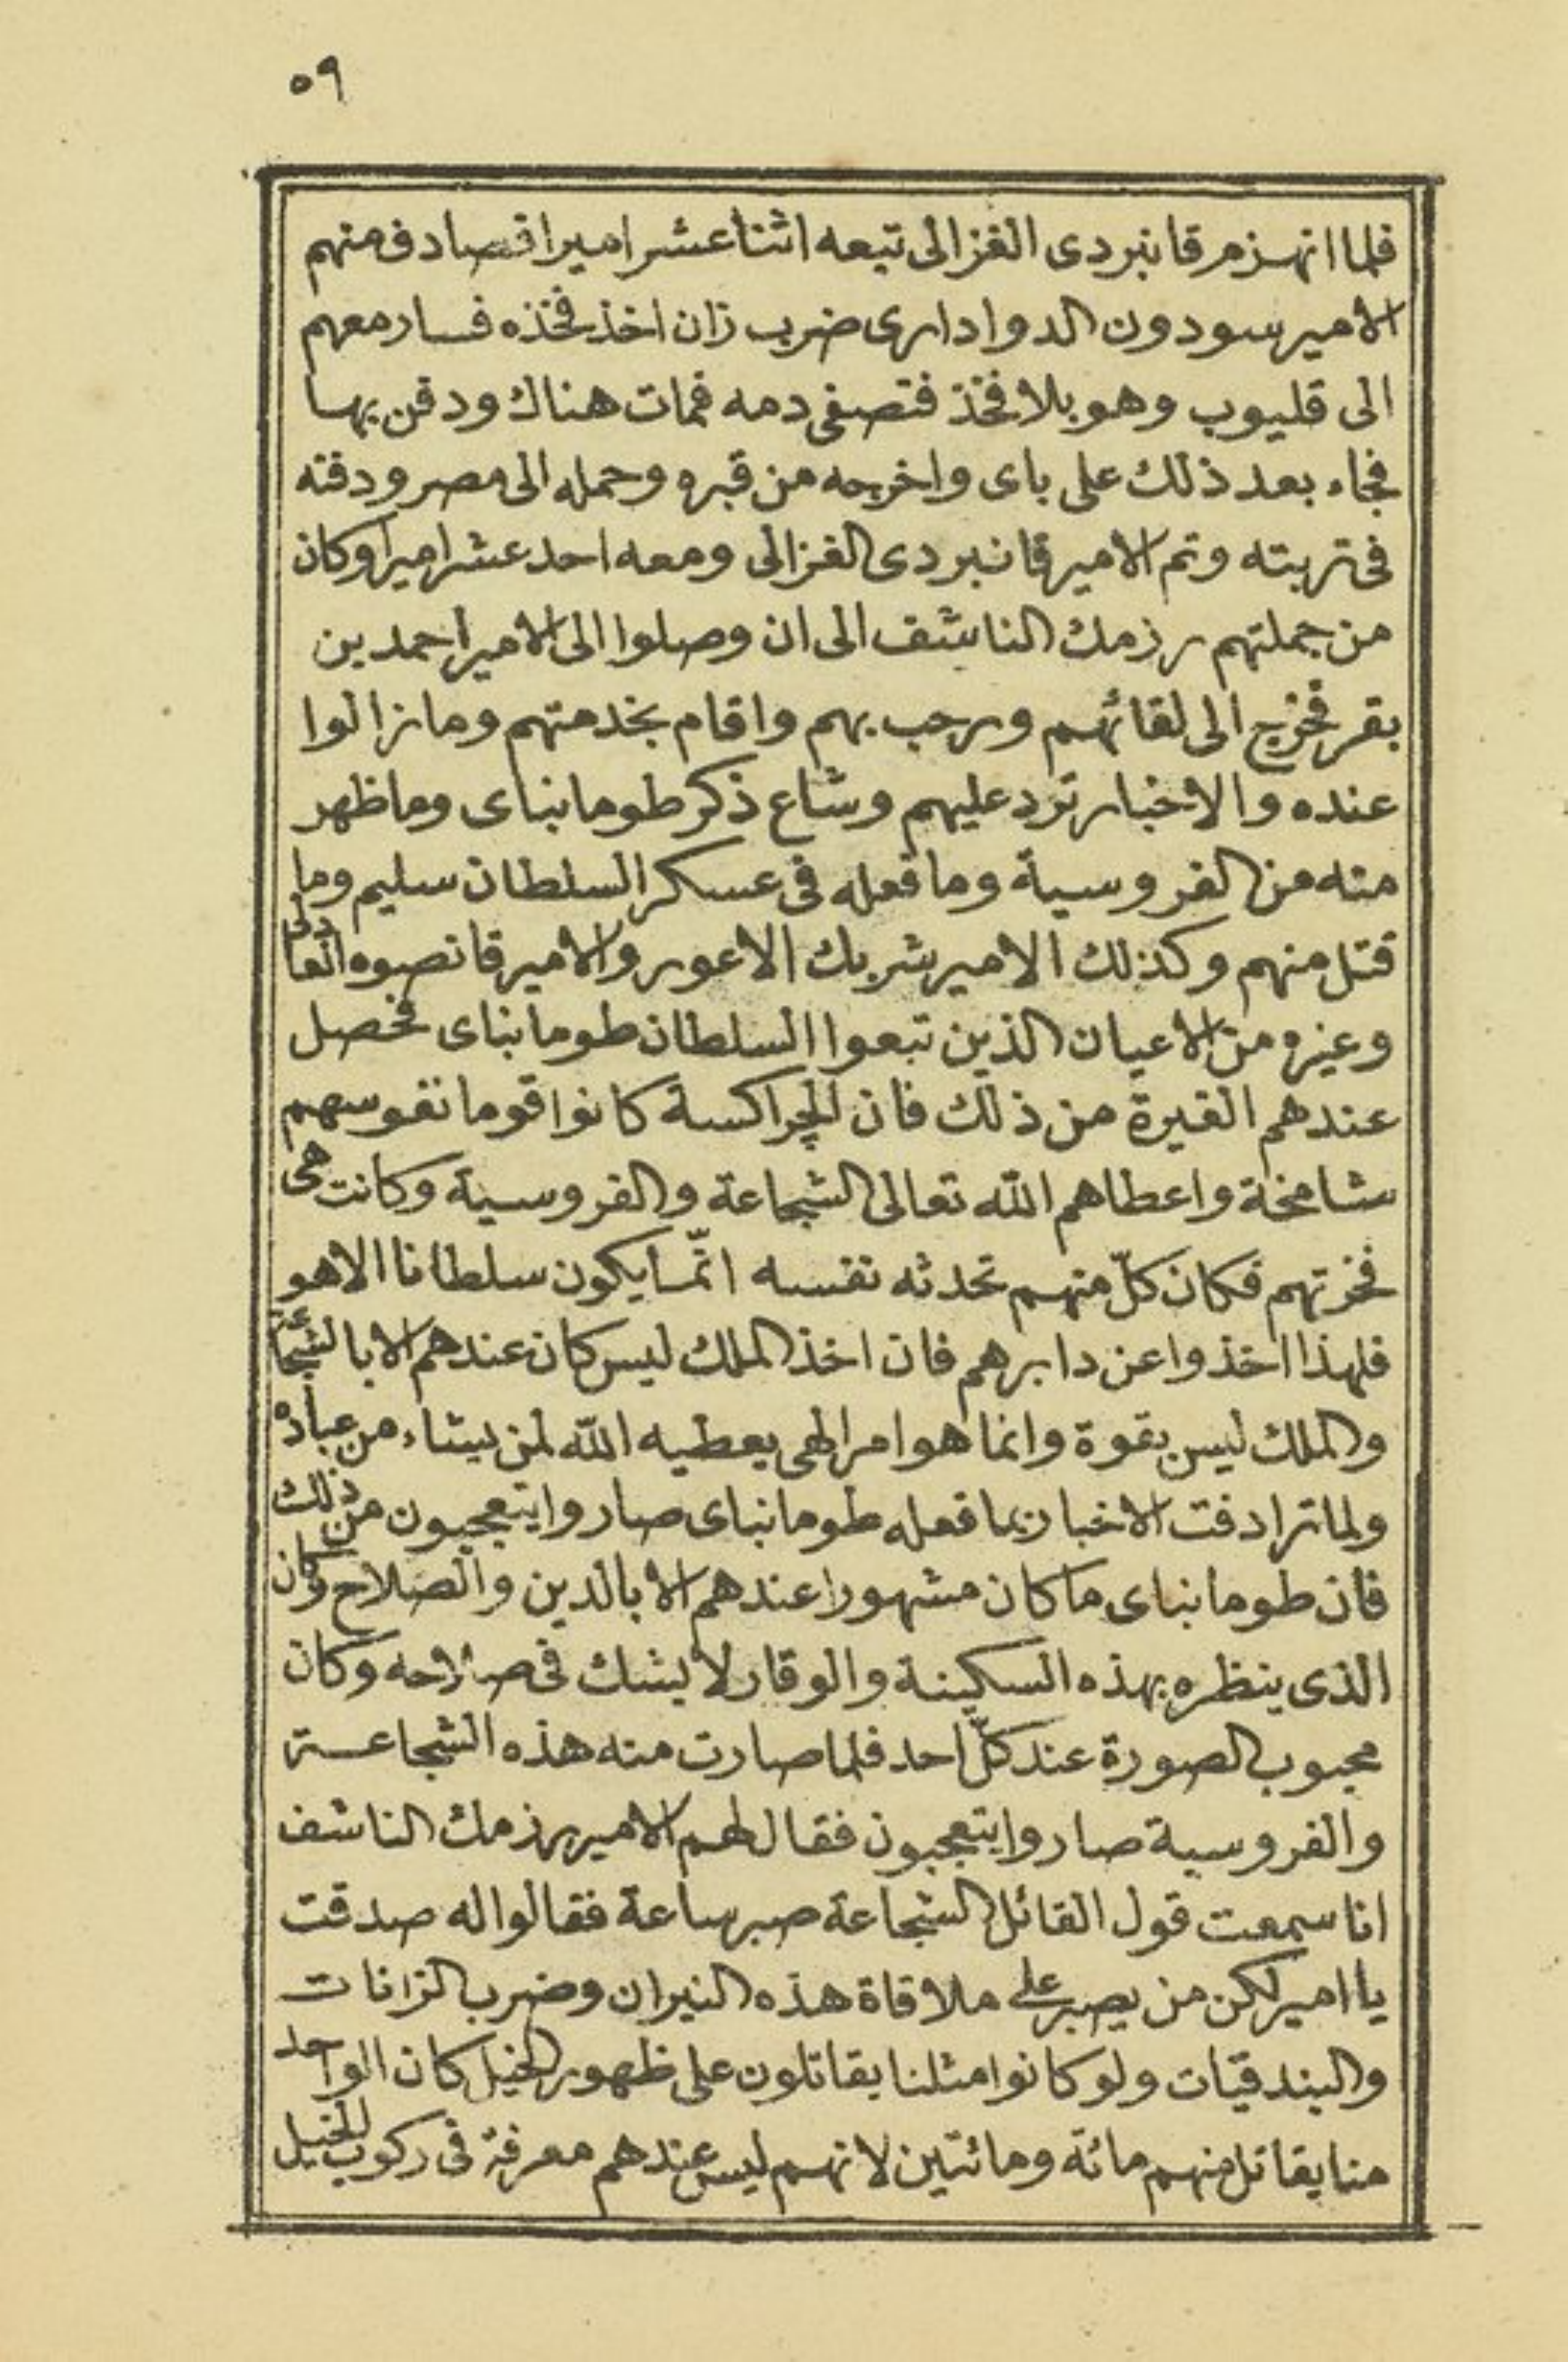 ٥٩
فلما انهزم قانبردى الغزالى تبعه اثنا عشر اميرا فصادف منهم
الامير سودون الدوادارى ضرب زان اخذ فخذه فسار معهم
الى قليوب وهو بلا فخذ فتصفى دمه فمات هناك ودفن بها
فجاء بعد ذلك على باى واخرجه من قبره وحمله الى مصر ودفنه
فى تربته وتم الامير قانبردى الغزالى ومعه احد عشر اميرا وكان
من جملتهم رزمك الناشف الى ان وصلوا الى الامير احمد بن
بقر فخرج الى لقائهم ورحب بهم واقام بخدمتهم وما زالوا
عنده والاخبار ترد عليهم وشاع ذكر طومانباى وما ظهر
منه من الفروسية وما فعله فى عسكر السلطان سليم وما
قتل منهم وكذلك الامير شربك الاعور والامير قانصوه العادلى
وغيره من الاعيان الذين تبعوا السلطان طومانباى فحصل
عندهم الغيرة من ذلك فان الچراكسة كانوا قوما نفوسهم
شامخة واعطاهم الله تعالى الشجاعة والفروسية وكانت هى
فخرتهم فكان كلّ منهم تحدثه نفسه انّما يكون سلطانا الا هو
فلهذا اخذوا عن دابرهم فان اخذ الملك ليس كان عندهم الا بالشجاعة
والملك ليس بقوة وانما هو امر الهى يعطيه الله لمن يشاء من عباده
ولما ترادفت الاخبار بما فعله طومانباى صاروا يتعجبون من ذلك
فان طومانباى ما كان مشهورا عندهم الا بالدين والصلاح وكان
الذى ينظره بهذه السكينة والوقار لا يشك فى صلاحه وكان
محبوب الصورة عند كلّ احد فلما صارت منه هذه الشجاعة
والفروسية صاروا يتعجبون فقال لهم الامير رزمك الناشف
انا سمعت قول القائل الشجاعة صبر ساعة فقالوا له صدقت
يا امير لكن من يصبر على ملاقاة هذه النيران وضرب الزانات
والبندقيات ولو كانوا مثلنا يقاتلون على ظهور الخيل كان الواحد
منا يقاتل منهم مائة ومائتين لانهم ليس عندهم معرفة فى ركوب الخيل